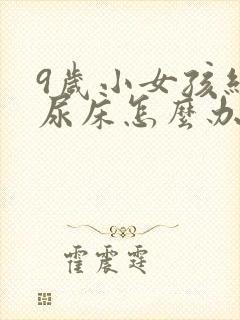 9歲小女孩經
尿床怎麼办
霍震霆